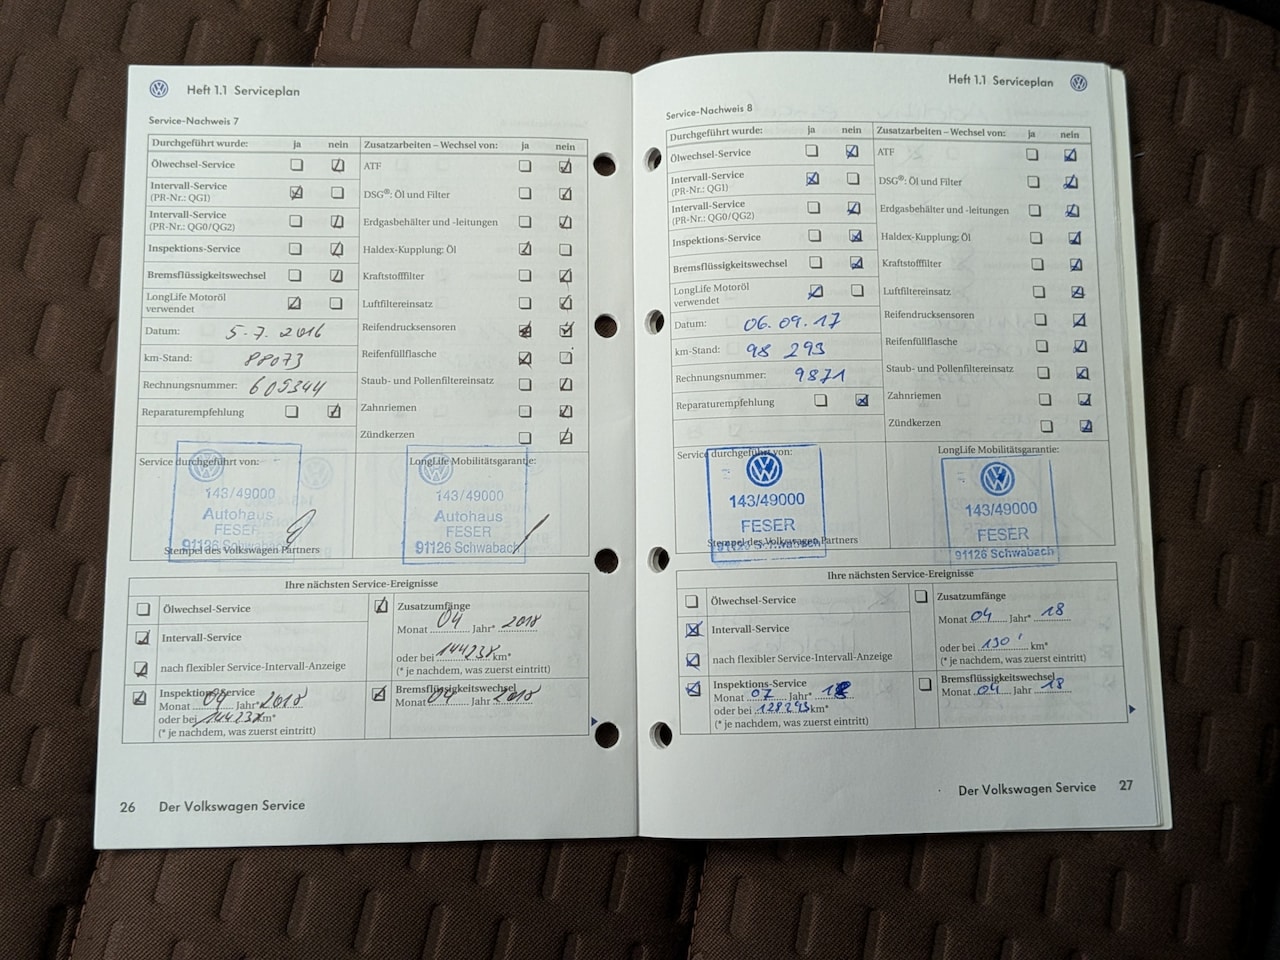 Heft 1.1 Serviceplan
Service-Nachweis 7
Durchgeführt wurde: ja nein
Ölwechsel-Service
Intervall-Service
(PR-Nr.: QG1)
Intervall-Service
(PR-Nr.: QG0/QG2)
Inspektions-Service
Bremsflüssigkeitswechsel
LongLife Motoröl
verwendet
Datum: 5-7. 2016
km-Stand: 88073
Rechnungsnummer: 605344
Reparaturempfehlung
Zusatzarbeiten – Wechsel von: ja nein
ATF
DSG®: Öl und Filter
Erdgasbehälter und -leitungen
Haldex-Kupplung: Öl
Kraftstofffilter
Luftfiltereinsatz
Reifendrucksensoren
Reifenfüllflasche
Staub- und Pollenfiltereinsatz
Zahnriemen
Zündkerzen
Service durchgeführt von:
143/49000
Autohaus
FESER
91126 Schwabach
Stempel des Volkswagen Partners
LongLife Mobilitätsgarantie:
143/49000
Autohaus
FESER
91126 Schwabach
Ihre nächsten Service-Ereignisse
Ölwechsel-Service
Intervall-Service
nach flexibler Service-Intervall-Anzeige
Inspektions-Service
Monat 04 Jahr* 2018
oder bei km*
(* je nachdem, was zuerst eintritt)
Zusatzumfänge
Monat 04 Jahr* 2018
oder bei km*
(* je nachdem, was zuerst eintritt)
Bremsflüssigkeitswechsel
Monat 04 Jahr 2018
26 Der Volkswagen Service
Heft 1.1 Serviceplan
Service-Nachweis 8
Durchgeführt wurde: ja nein
Ölwechsel-Service
Intervall-Service
(PR-Nr.: QG1)
Intervall-Service
(PR-Nr.: QG0/QG2)
Inspektions-Service
Bremsflüssigkeitswechsel
LongLife Motoröl
verwendet
Datum: 06.09.17
km-Stand: 98 293
Rechnungsnummer: 9871
Reparaturempfehlung
Zusatzarbeiten – Wechsel von: ja nein
ATF
DSG®: Öl und Filter
Erdgasbehälter und -leitungen
Haldex-Kupplung: Öl
Kraftstofffilter
Luftfiltereinsatz
Reifendrucksensoren
Reifenfüllflasche
Staub- und Pollenfiltereinsatz
Zahnriemen
Zündkerzen
Service durchgeführt von:
143/49000
FESER
91126 Schwabach
Stempel des Volkswagen Partners
LongLife Mobilitätsgarantie:
143/49000
FESER
91126 Schwabach
Ihre nächsten Service-Ereignisse
Ölwechsel-Service
Intervall-Service
nach flexibler Service-Intervall-Anzeige
Inspektions-Service
Monat 07 Jahr*
oder bei 128293 km*
(* je nachdem, was zuerst eintritt)
Zusatzumfänge
Monat 04 Jahr* 18
oder bei 130' km*
(* je nachdem, was zuerst eintritt)
Bremsflüssigkeitswechsel
Monat 04 Jahr 18
Der Volkswagen Service 27